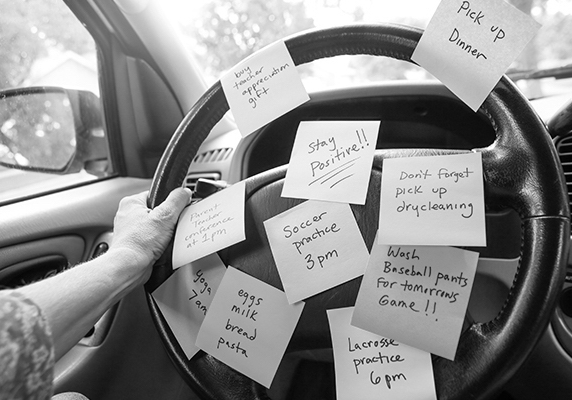 Pick up
Dinner
buy
teacher
appreciation
gift
Stay
Positive!!
Don't forget
pick up
drycleaning
Parent
Teacher
conference
at 1pm
Soccer
practice
3pm
Wash
Baseball pants
For tomorrows
Game!!
yoga
7am
eggs
milk
bread
pasta
Lacrosse
practice
6pm